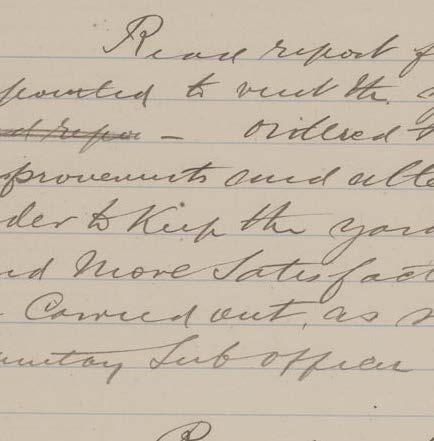 Read report f
pointed to visit the y
ed repor - ordered t
provements and alte
der to Keep the yard
nd More Satisfact
Carried out, as s
anitary Sub officer
R